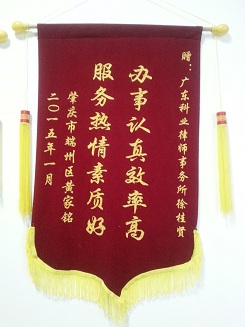 赠：广东科业律师事务所徐桂贤
办事认真效率高
服务热情素质好
肇庆市端州区黄家铭
二〇一五年一月